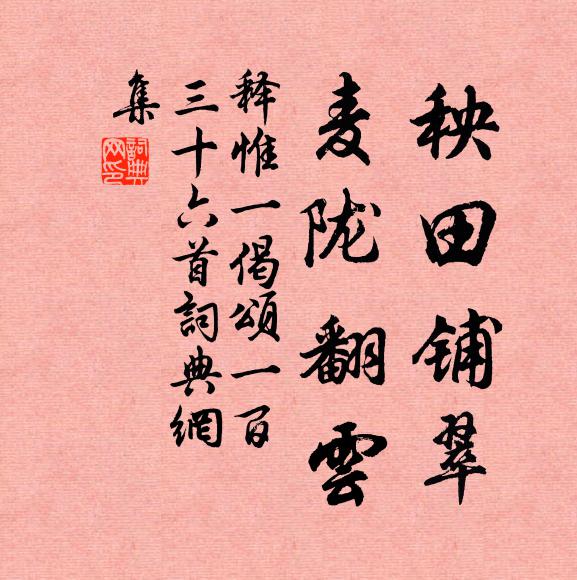 秧田铺翠
麦陇翻雲
释惟一偈頌一百
三十六首詞典網
集
詞典
网印